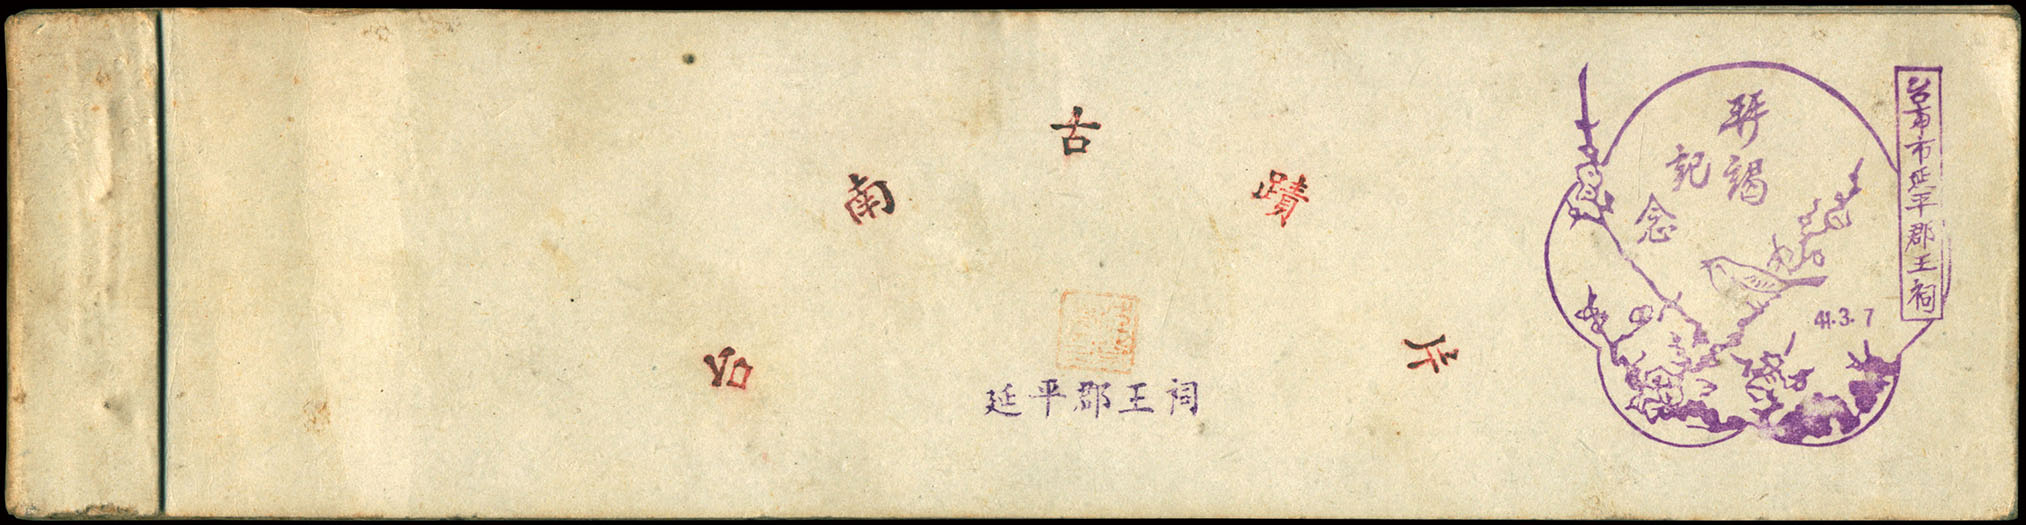 台南古蹟片
延平郡王祠
拜謁
記念
41.3.7
台南市延平郡王祠